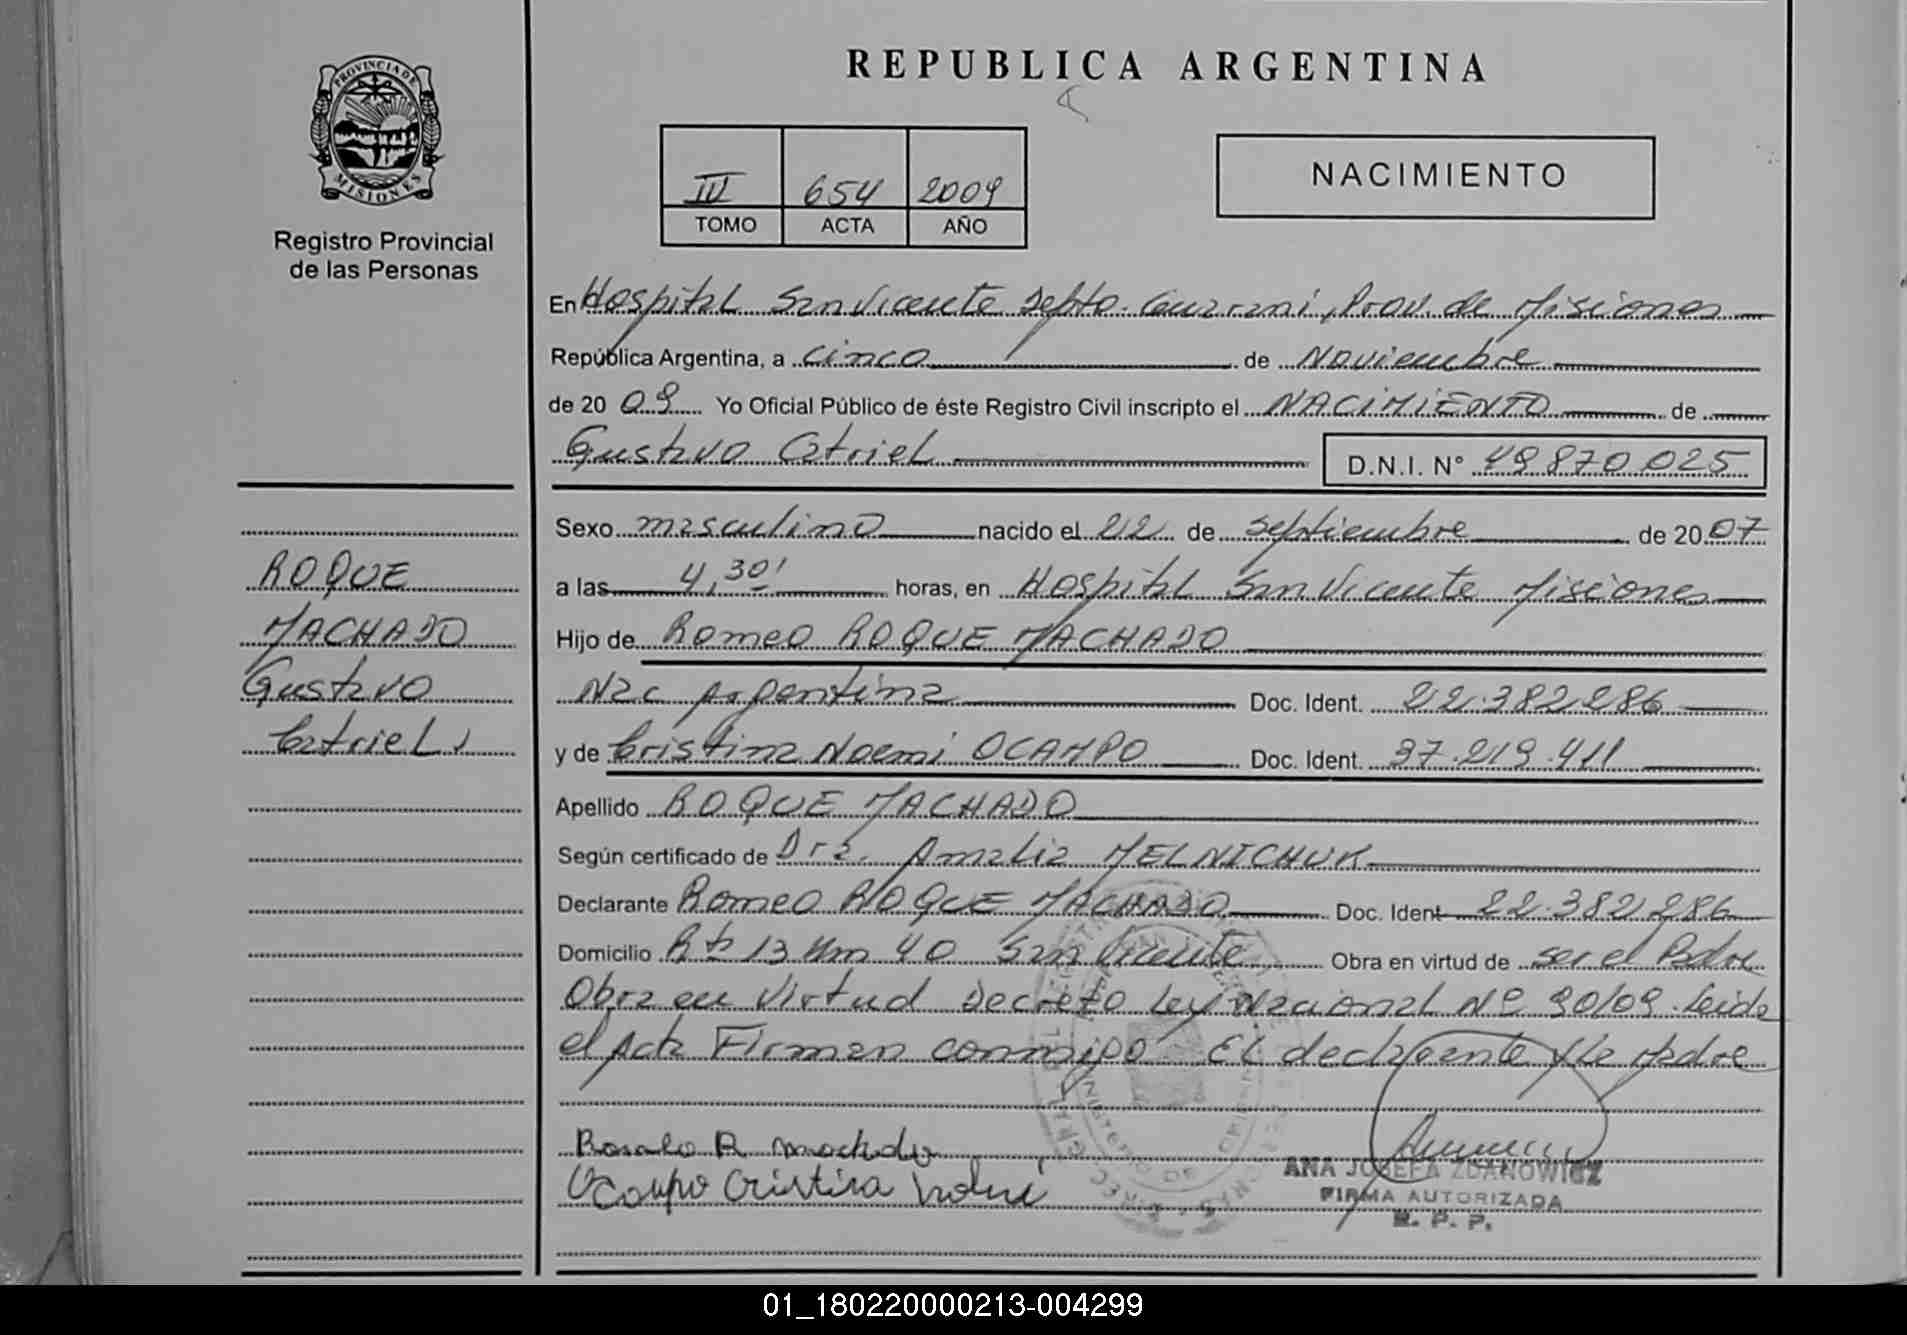 REPUBLICA ARGENTINA
PROVINCIA DE
MISIONES
Registro Provincial
de las Personas
III 654 2009
TOMO ACTA AÑO
NACIMIENTO
En Hospital San Vicente Depto. Guarani, Prov. de Misiones
República Argentina, a Cinco de Noviembre
de 20 09 Yo Oficial Público de éste Registro Civil inscripto el NACIMIENTO de
Gustavo Catriel D.N.I. N° 49870025
Sexo masculino nacido el 22 de septiembre de 20 07
a las 4,30' horas, en Hospital San Vicente Misiones
Hijo de Romeo ROQUE MACHADO
Nac Argentina Doc. Ident. 22.382.286
y de Cristina Noemi OCAMPO Doc. Ident. 37.219.411
Apellido ROQUE MACHADO
Según certificado de Dra. Amalia MELNICHUK
Declarante Romeo ROQUE MACHADO Doc. Ident 22.382.286
Domicilio Rta 13 Km 40 San Vicente Obra en virtud de ser el Padre
Obra en Virtud Decreto Ley Nacional Nº 90/09. Leida
el Acta Firman conmigo El declarante y la Madre
ROQUE
MACHADO
Gustavo
Catriel
R. Machado
Ocampo Cristina Noemi
ANA JOSEFA ZDANOWICZ
FIRMA AUTORIZADA
R. P. P.
01_180220000213-004299